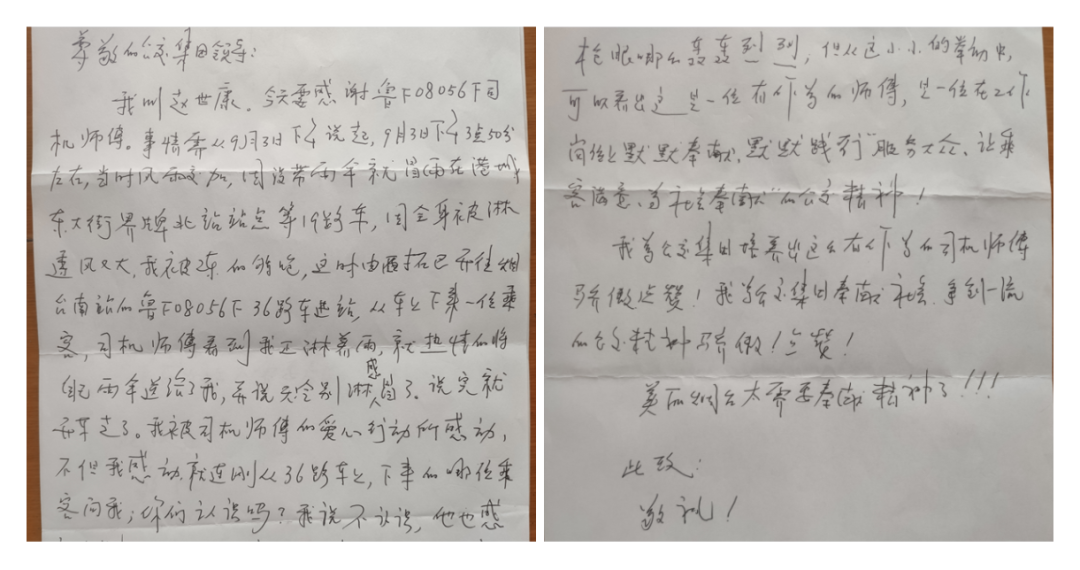 尊敬的公交集团领导:
我叫赵世康。今天要感谢鲁F08056F司
机师傅。事情要从9月3日下午说起,9月3日下午3点50分
左右,当时风雨交加,因没带雨伞就冒雨在港城
东大街界牌北站站点等19路车,因全身被淋
透风又大,我被冻的够呛,这时由 开往烟
台南站的鲁F08056F 36路车进站,从车上下来一位乘
客,司机师傅看到我正淋着雨,就热情的将
自己雨伞送给了我,并说天冷别淋感冒了。说完就
开车走了。我被司机师傅的爱心行动所感动,
不但我感动就连刚从36路车上,下来的哪位乘
客问我;你们认识吗?我说不认识,他也感
哪么轰轰烈烈,但从这小小的举动中,
可以看出这是一位有作为的师傅,是一位在工作
岗位上默默奉献、默默践行"服务大众、让乘
客满意、为社会奉献"的公交精神!
我为公交集团培养出这么有作为的司机师傅
骄傲点赞!我为公交集团奉献社会、争创一流
的公交精神骄傲!点赞!
美丽烟台太需要奉献精神了!!!
此致:
敬礼!